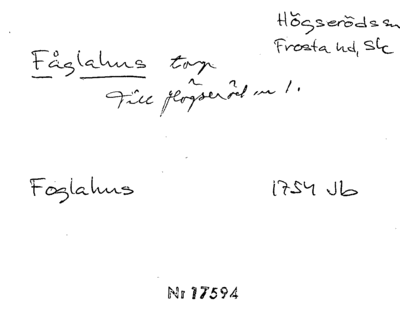 Högseröds sn
Frosta hd, Sk
Fåglahus torp
Till Högseröd nr 1.
Foglahus 1754 Jb
Nr 17594